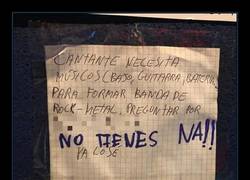 CANTANTE NECESITA
MÚSICOS (BAJO, GUITARRA, BATERIA)
PARA FORMAR BANDA DE
ROCK-METAL, PREGUNTAR POR
NO TIENES NA!!
YA LO SÉ